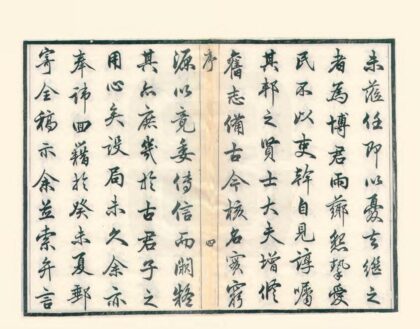 未蒞任即以憂去繼之
者為博君雨懇摯愛
民不以吏幹自見諄囑
其邦之賢士大夫增修
舊志備古今核名實窮
序 四
源以竟委傳信而闕疑
其亦庶幾於古君子之
用心矣設局未久余亦
奉諱回籍於癸未夏郵
寄全稿示余並索弁言